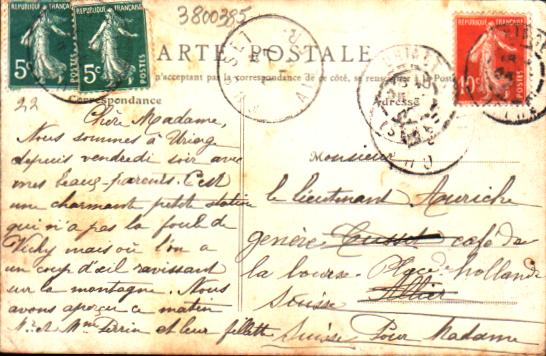 3800385
RÉPUBLIQUE FRANÇAISE
5c
POSTES
RÉPUBLIQUE FRANÇAISE
5c
POSTES
10c
POSTES
CARTE POSTALE
n'acceptant pas la correspondance de ce côté, se renseigner à la Poste
Correspondance
Adresse
22
Chère Madame,
Nous sommes à Uriage
depuis vendredi soir avec
mes beaux-parents. C'est
une charmante petite station
qui n'a pas la foule de
Vichy mais où l'on a
un coup d'œil ravissant
sur la montagne. Nous
avons ce matin
Mr et Mme Perrin et leur fillette
Monsieur
le lieutenant Auriche
genève Cusset café de
la bourse Place hollande
Suisse Allier
Suisse Pour Madame